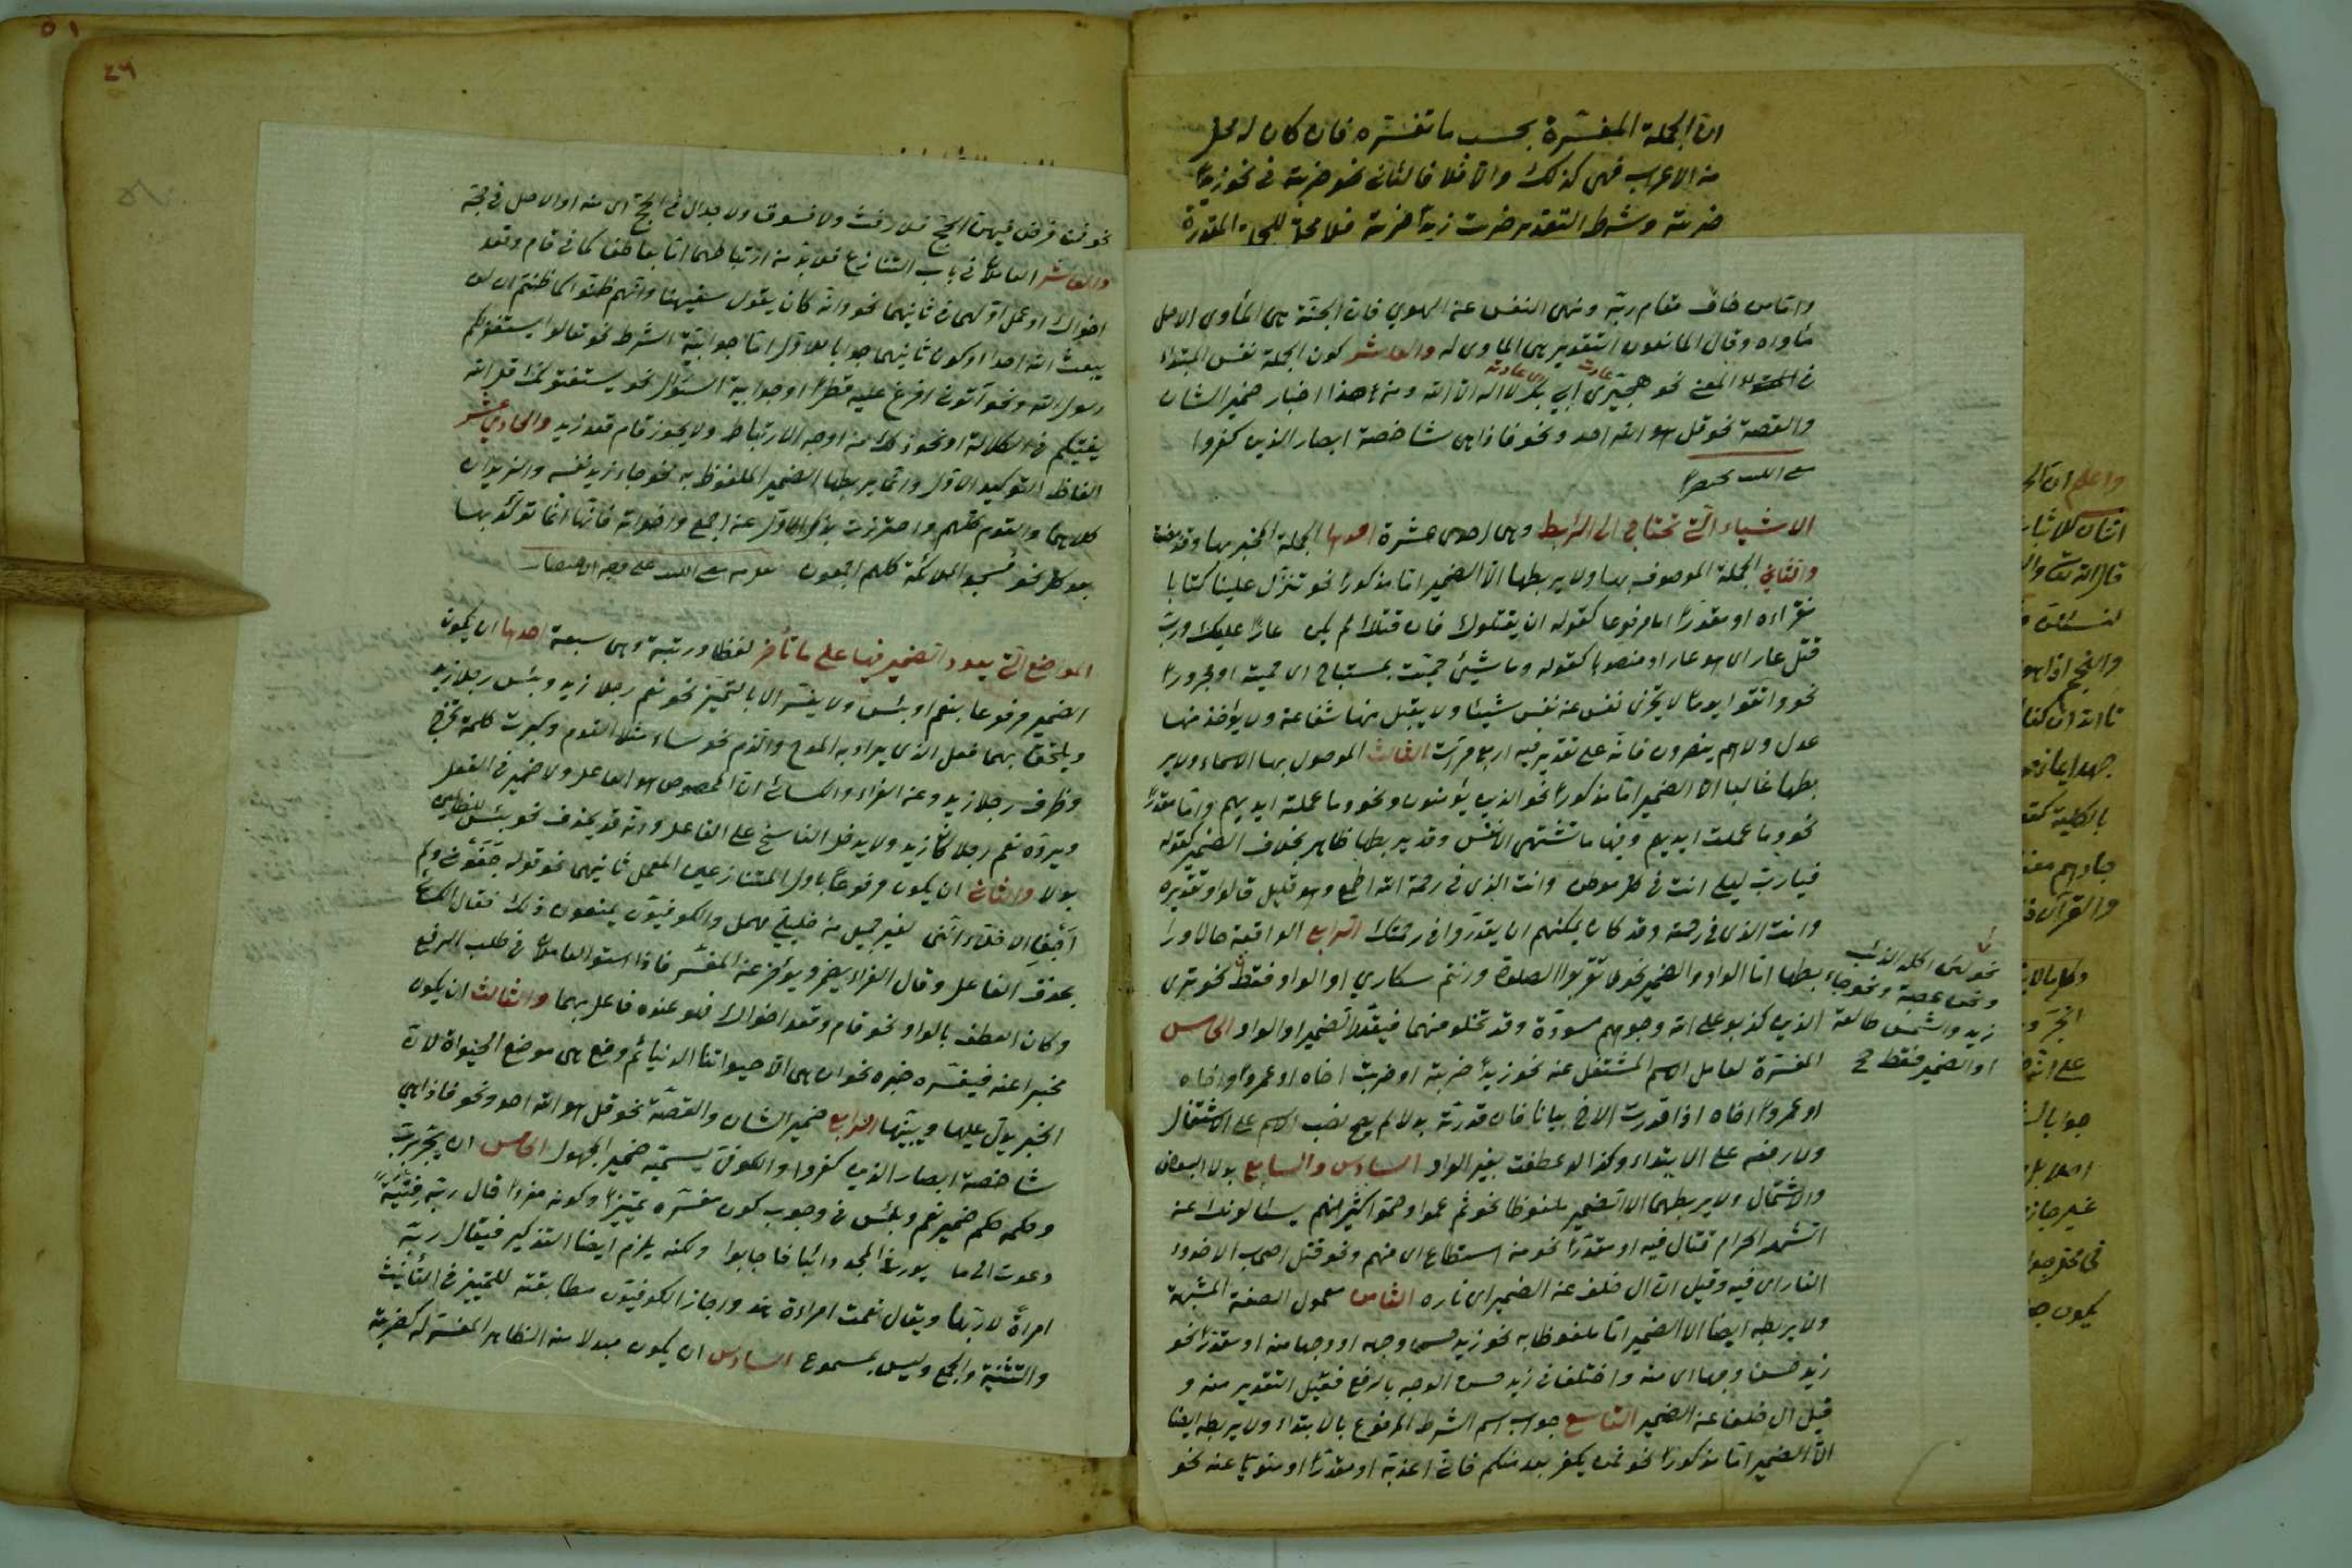 ان الجملة المفسرة بحسب ما تفسره فان كان له محل
من الاعراب فهي كذلك والا فلا فالثاني نحو ضربته في نحو زيدا
ضربته وشرط التقدير ضربت زيدا ضربته فلا محل للجملة المقدرة
واما من خاف مقام ربه ونهى النفس عن الهوي فان الجنة هي المأوى الاصل
مأواه وقال المانعون التقدير هي المأوى له والعاشر كون الجملة نفس المبتداء
في المعنى نحو هجيرى ابي بكر لا اله الا الله ومن هذا اخبار ضمير الشان
والقصة نحو قل هو الله احد ونحو فاذا هي شاخصة ابصار الذين كفروا
مغني اللبيب مختصرا
الاشياء التي تحتاج الى الرابط وهي احدى عشرة احدها الجملة المخبر بها وقد مضت
والثاني الجملة الموصوف بها ولا يربطها الا الضمير اما مذكورا نحو تنزل علينا كتابا
نقراءه او مقدرا اما مرفوعا كقوله ان يقتلوك فان قتلك لم يكن عارا عليك ورب
قتل عار اى هو عار او منصوبا كقوله وما شيئ حميت بمستباح اى حميته او مجرورا
نحو واتقوا يوما لا تجزى نفس عن نفس شيئا ولا يقبل منها شفاعة ولا يؤخذ منها
عدل ولا هم ينصرون فانه على تقدير فيه اربع مرات الثالث الموصول بها الاسماء ولا ير
بطها غالبا الا الضمير اما مذكورا نحو الذين يؤمنون ونحو وما عملته ايديهم واما مقدرا
نحو وما عملت ايديهم وفيها ما تشتهى الانفس وقد يربطها ظاهر يخلف الضمير كقوله
فيارب ليلى انت في كل موطن وانت الذى في رحمة الله اطمع وهو قليل قالوا وتقديره
وانت الذى في رحمته وقد كان يمكنهم ان يقدروا في رحمتك الرابع الواقعة حالا ورا
بطها اما الواو والضمير نحو لا تقربوا الصلوة وانتم سكارى او الواو فقط نحو ترى
نحو لئن اكله الذئب
ونحن عصبة ونحو جاء
زيد والشمس طالعة
او الضمير فقط
الذين كذبوا على الله وجوههم مسودة وقد تخلو منهما فيقدر الضمير او الواو الخامس
المفسرة لعامل الاسم المشتغل عنه نحو زيدا ضربته او ضربت اخاه او عمروا واخاه
او عمروا اخاه اذا قدرت الاخ بيانا فان قدرته بدلا لم يصح نصب الاسم على الاشتغال
ولا رفعه على الابتداء وكذا لو عطفت بغير الواو السادس والسابع بدلا البعض
والاشتمال ولا يربطهما الا الضمير ملفوظا نحو ثم عموا وصموا كثير منهم يسألونك عن
الشهر الحرام قتال فيه او مقدرا نحو من استطاع اى منهم ونحو قتل اصحاب الاخدود
النار اى فيه وقيل ان ال خلف عن الضمير اى ناره الثامن معمول الصفة المشبهة
ولا يربطه ايضا الا الضمير اما ملفوظا به نحو زيد حسن وجهه او وجها منه او مقدرا نحو
زيد حسن وجها اى منه واختلف في زيد حسن الوجه بالرفع فقيل التقدير منه و
قيل ال خلف عن الضمير التاسع جواب اسم الشرط المرفوع بالابتداء ولا يربطه ايضا
الا الضمير اما مذكورا نحو فمن يكفر بعد منكم فاني اعذبه او مقدرا او منوبا عنه نحو
واعلم ان
وكل ما
على انه
غير جايز
٥١
٤٦
نحو فمن فرض فيهن الحج فلا رفث ولا فسوق ولا جدال في الحج اى منه او الاصل في حجه
والعاشر العاملان في باب التنازع فلا بد من ارتباطهما اما بعاطف كما في قام وقعد
اخواك او عمل اولهما في ثانيهما نحو وانه كان يقول سفيهنا وانهم ظنوا كما ظننتم ان لن
يبعث الله احدا او كون ثانيهما جوابا للاول اما جوابية الشرط نحو تعالوا يستغفر لكم
رسول الله ونحو آتوني افرغ عليه قطرا او جوابية السؤال نحو يستفتونك قل الله
يفتيكم في الكلالة او نحو ذلك من اوجه الارتباط ولا يجوز قام قعد زيد والحادي عشر
الفاظ التوكيد الاول وانما يربطها الضمير الملفوظ به نحو جاء زيد نفسه والزيدان
كلاهما والقوم كلهم واحترزت بذكر الاول عن اجمع واخواته فانها انما تؤكد بها
بعد كل نحو فسجد الملائكة كلهم اجمعون نقل من مغني اللبيب على وجه الاختصار
المواضع التي يعود الضمير فيها على ما تأخر لفظا ورتبة وهي سبعة احدها ان يكون
الضمير مرفوعا بنعم او بئس ولا يفسر الا بالتمييز نحو نعم رجلا زيد وبئس رجلا زيد
ويلتحق بهما فعل الذى يراد به المدح والذم نحو ساء مثلا القوم وكبرت كلمة تخرج
وظرف رجلا زيد وعن الفراء والكسائي ان المخصوص هو الفاعل ولا ضمير في الفعل
ويرده نعم رجلا كان زيد ولا يدخل الناسخ على الفاعل وانه قد يحذف نحو بئس للظالمين
بدلا والثاني ان يكون مرفوعا باول المتنازعين المعمل ثانيهما نحو قوله جفوني ولم
اجف الاخلاء انني لغير جميل من خليلي مهمل والكوفيون يمنعون ذلك فقال الكسائي
بحذف الفاعل وقال الفراء يضمر ويؤخر عن المفسر فاذا استوى العاملان في طلب الرفع
وكان العطف بالواو نحو قام وقعد اخواك فهو عنده فاعل بهما والثالث ان يكون
مخبرا عنه فيفسره خبره نحو ان هي الا حيواتنا الدنيا ثم وضع هي موضع الحيواة لان
الخبر يدل عليها ويبينها الرابع ضمير الشان والقصة نحو قل هو الله احد ونحو فاذا هي
شاخصة ابصار الذين كفروا والكوفي يسميه ضمير المجهول الخامس ان يجر برب
وحكمه حكم ضمير نعم وبئس في وجوب كون مفسره تمييزا وكونه مفردا قال ربه فتية
دعوت الى ما يورث المجد دائبا فاجابوا ولكنه يلزم ايضا التذكير فيقال ربه
امراة لا ربها ويقال نعمت امراءة هند واجاز الكوفيون مطابقته للتمييز في التأنيث
والتثنية والجمع وليس بمسموع السادس ان يكون مبدلا منه الظاهر المفسر له كضربته